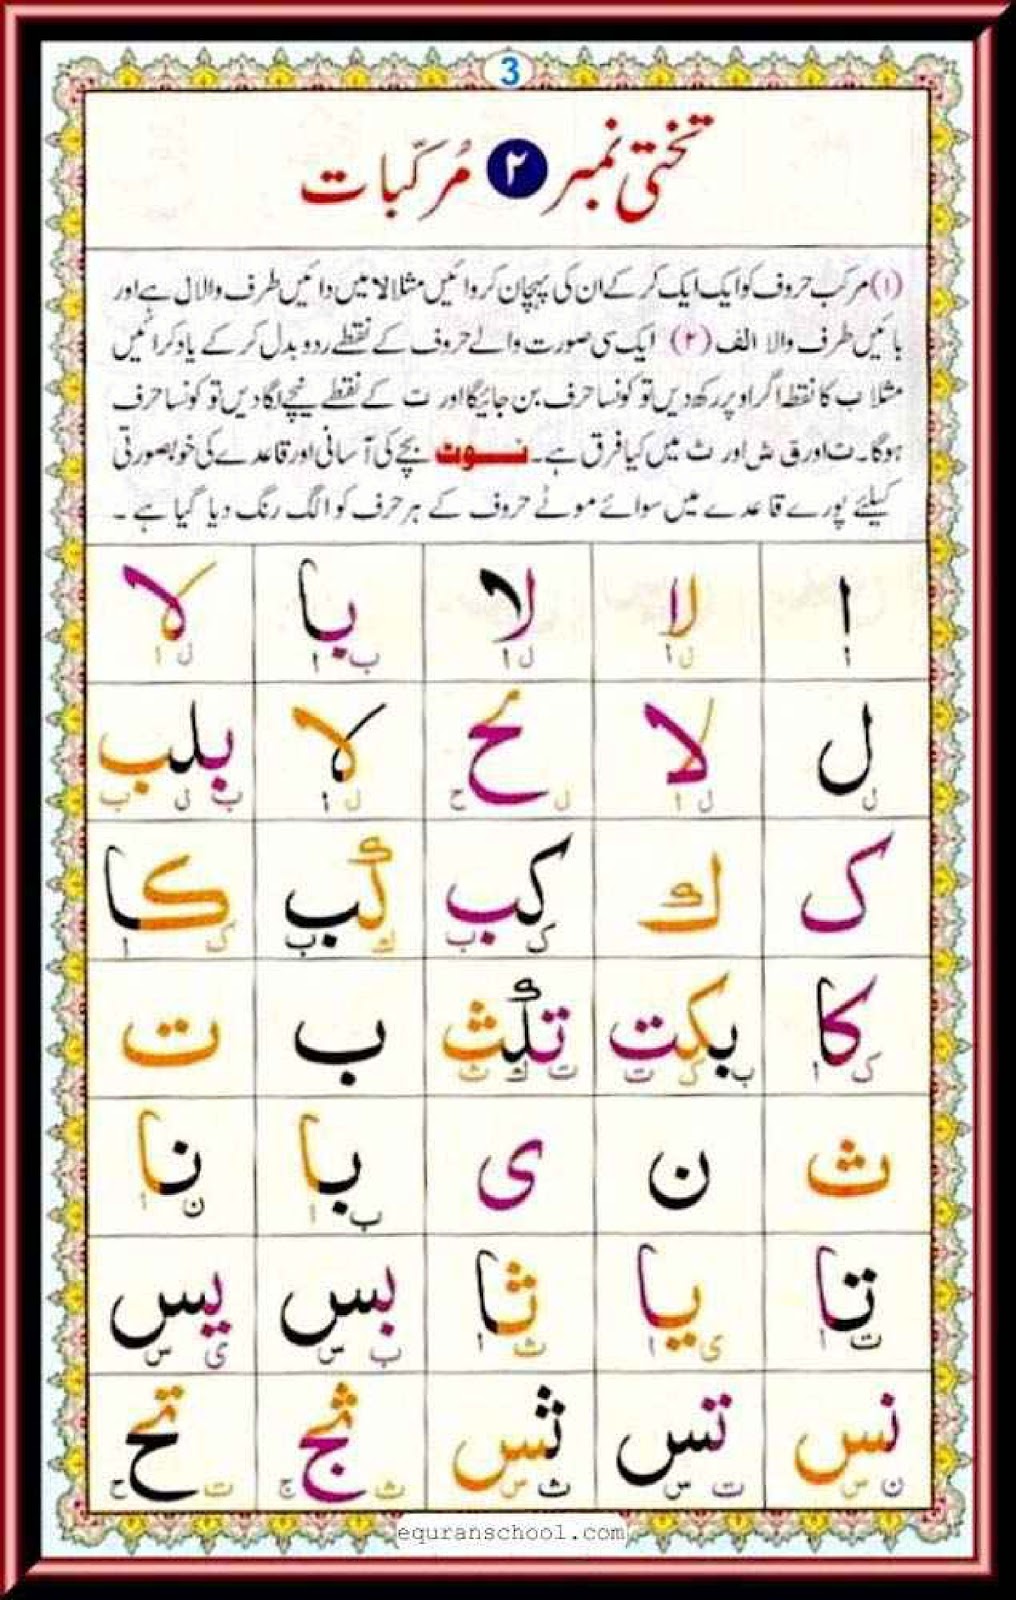 3
تختی نمبر ۲ مُرکّبات
(۱) مرکب حروف کو ایک ایک کر کے ان کی پہچان کروائیں مثلا لا میں دائیں طرف والا ل ہے اور
بائیں طرف والا الف (۲) ایک سی صورت والے حروف کے نقطے ردوبدل کر کے یاد کرائیں
مثلا ب کا نقطہ اگر اوپر رکھ دیں تو کونسا حرف بن جائیگا اور ت کے نقطے نیچے لگا دیں تو کونسا حرف
ہوگا۔ ت اور ق ش اور ث میں کیا فرق ہے۔ نوٹ بچے کی آسانی اور قاعدے کی خوبصورتی
کیلئے پورے قاعدے میں سوائے موٹے حروف کے ہر حرف کو الگ رنگ دیا گیا ہے ۔
ا لا لا با لا
ا ل ا ل ا ب ا ل ا
ل لا لح لا بلب
ل ل ا ل ح ل ا ب ل ب
ک ك کب كب کا
ک ب ك ب ک ا
کا بکت تكث ب ت
ک ا ب ک ت ت ك ث
ث ن ی با نا
ب ا ن ا
تا یا ثا بس یس
ت ا ی ا ث ا ب س ی س
نس تس ثس ثج تح
ن س ت س ث س ث ج ت ح
equranschool.com